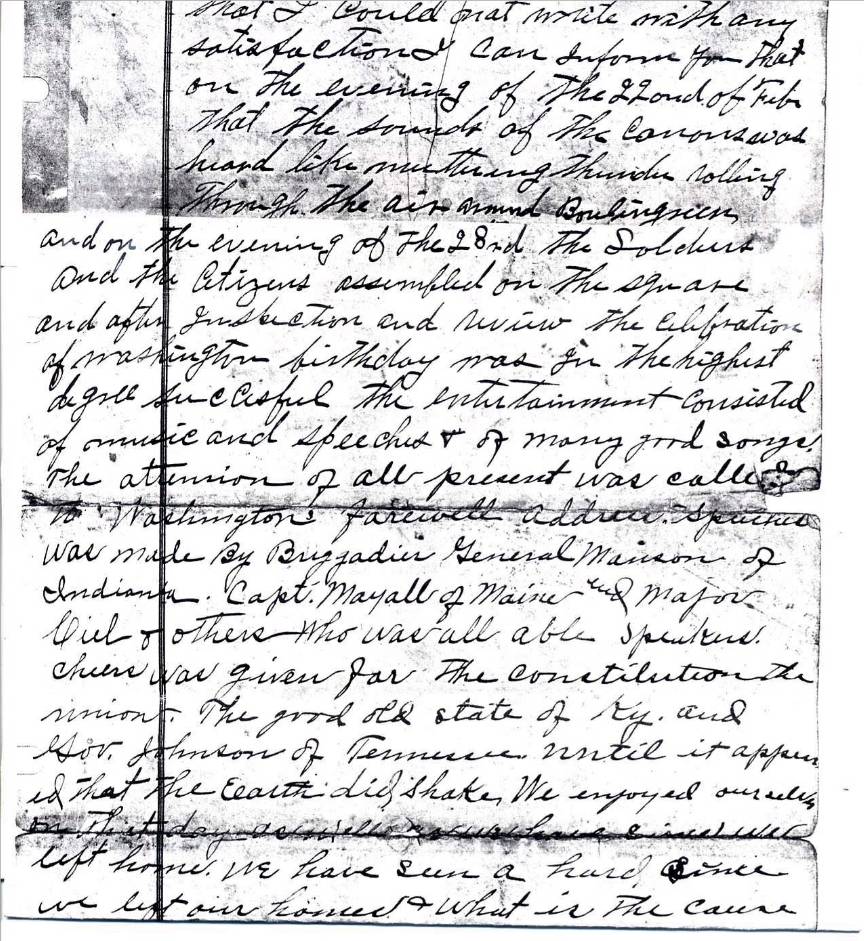 that I could not write with any
satisfaction I can inform you that
on the evening of the 22ond. of Feb.
that the sounds of the canons was
heard like muttering thunder rolling
Through the air around Boulingreen
and on the evening of the 28rd. the Soldiers
and the Citizens assembled on the square
and after Inspection and review the celibration
of washington birthday was in the highest
degree succesful the entertainment consisted
of music and speeches & of many good songs.
The attension of all present was called
to Washingtons farewell address. Speeches
was made By Briggadier General Manson of
Indiana. Capt. Mayall of Maine and Major
& others who was all able speakers.
cheers was given for the constitution the
union. The good old state of Ky. and
Gov. Johnson of Tennessee until it appear
ed that the Earth did shake, We enjoyed ourselves
on that day as well as we have since we
left home. We have seen a hard since
we left our homes & what is the cause